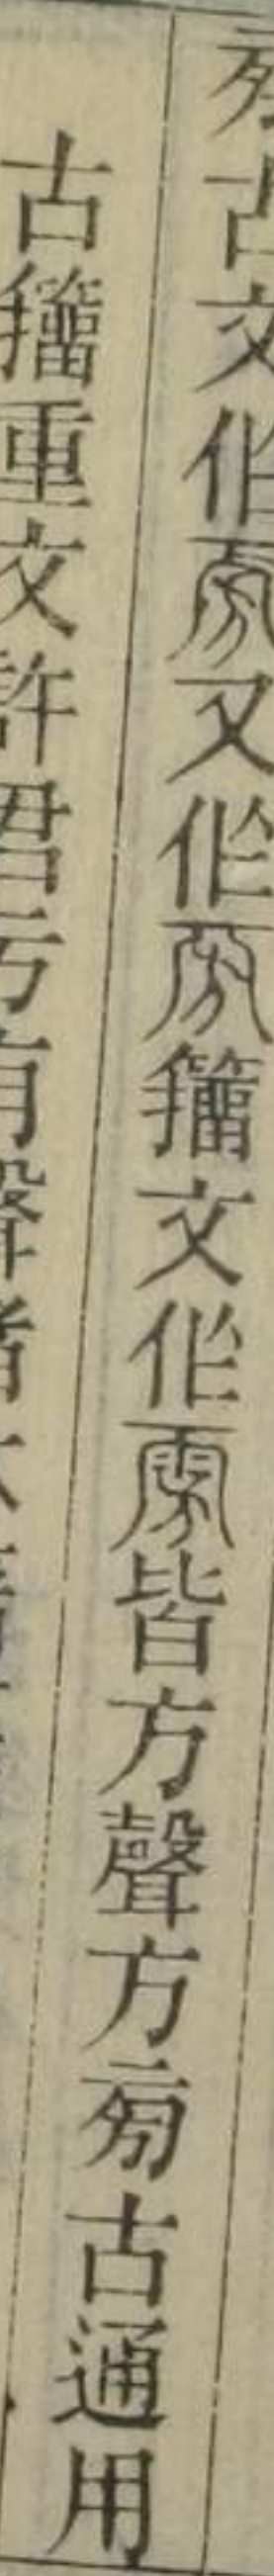 㫄古文作𣃟又作𣃙籒文作雱皆方聲方㫄古通用
古籒重文許君亏有聲者